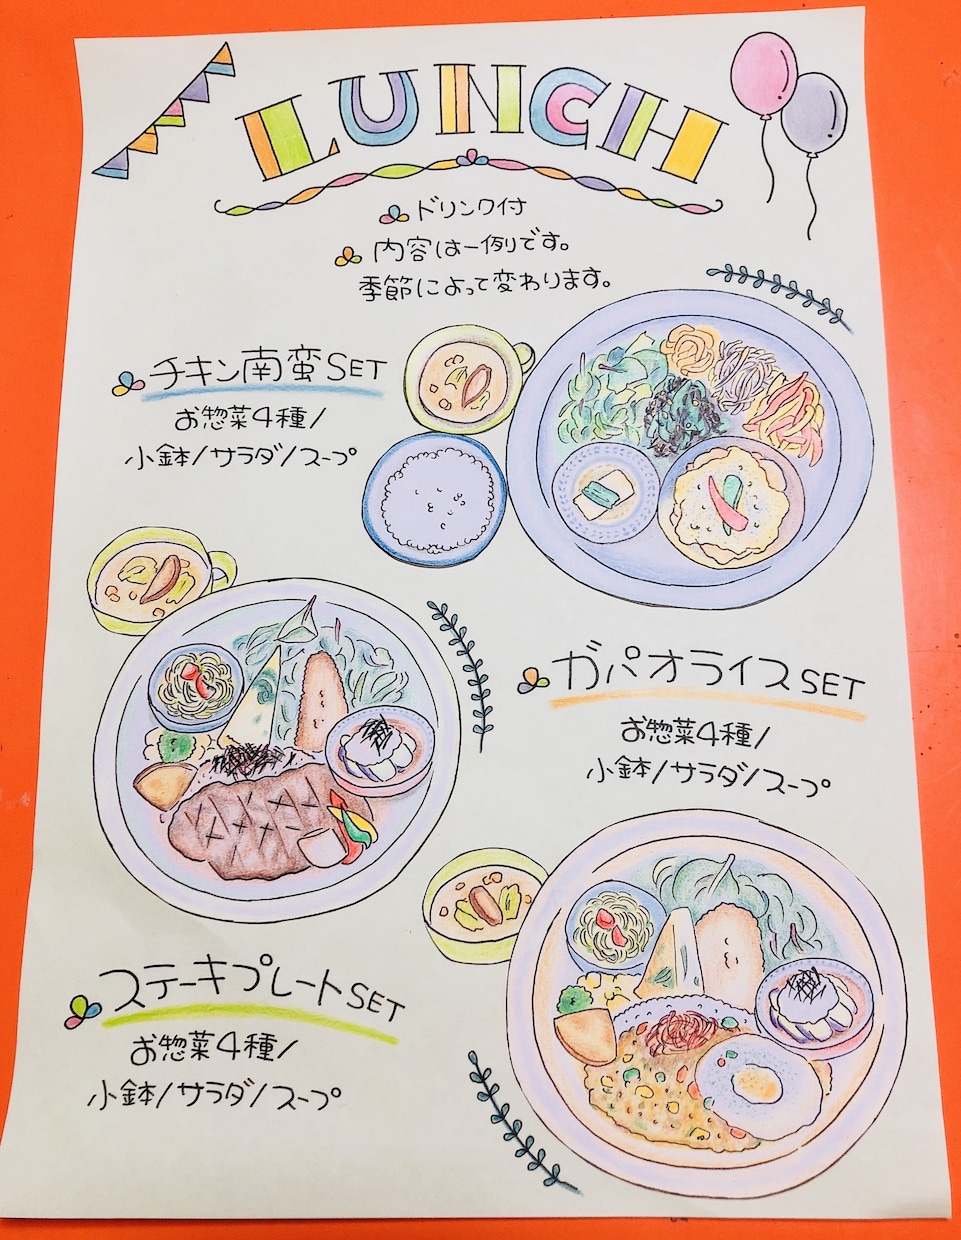 LUNCH
ドリンク付
内容は一例です。
季節によって変わります。
チキン南蛮SET
お惣菜4種/
小鉢/サラダ/スープ
ガパオライスSET
お惣菜4種/
小鉢/サラダ/スープ
ステーキプレートSET
お惣菜4種/
小鉢/サラダ/スープ